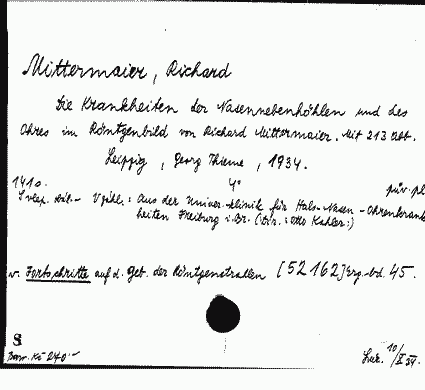 Mittermaier, Richard
Die Krankheiten der Nasennebenhöhlen und des
Ohres im Röntgenbild von Richard Mittermaier. Mit 213 Abb.
Leipzig, Georg Thieme, 1934.
1410. 4°
aus der Univers.-klinik für Hals-Nasen-Ohrenkrank
heiten Freiburg i. Br. (Dir.: Otto Kahler:)
v. Fortschritte auf d. Geb. der Röntgenstrahlen [52162] Erg.-bd. 45.
S
240.-
10/X 34.